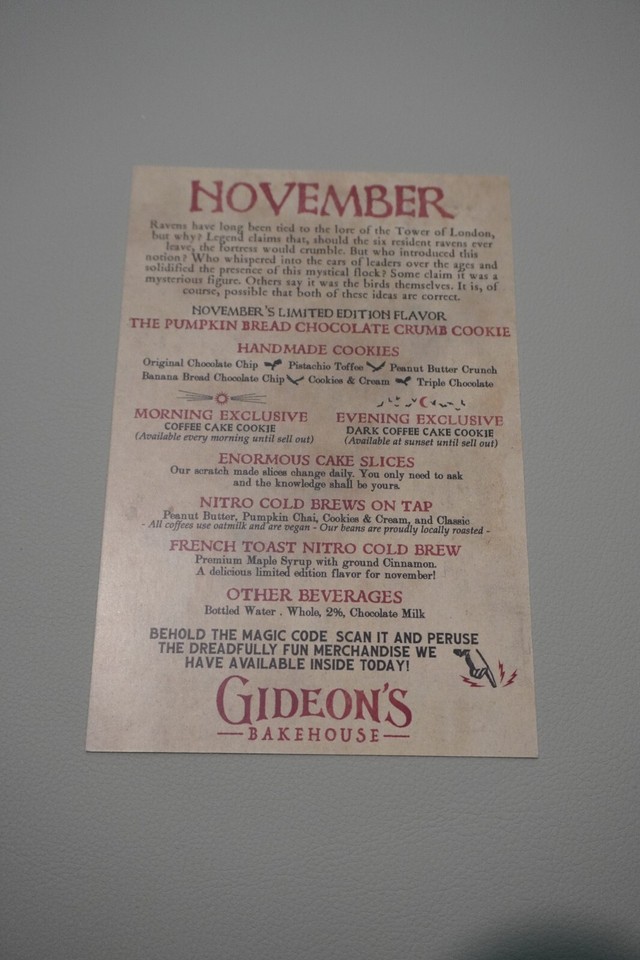 NOVEMBER
Ravens have long been tied to the lore of the Tower of London,
but why? Legend claims that, should the six resident ravens ever
leave, the fortress would crumble. But who introduced this
notion? Who whispered into the ears of leaders over the ages and
solidified the presence of this mystical flock? Some claim it was a
mysterious figure. Others say it was the birds themselves. It is, of
course, possible that both of these ideas are correct.
NOVEMBER'S LIMITED EDITION FLAVOR
THE PUMPKIN BREAD CHOCOLATE CRUMB COOKIE
HANDMADE COOKIES
Original Chocolate Chip Pistachio Toffee Peanut Butter Crunch
Banana Bread Chocolate Chip Cookies & Cream Triple Chocolate
MORNING EXCLUSIVE
COFFEE CAKE COOKIE
(Available every morning until sell out)
EVENING EXCLUSIVE
DARK COFFEE CAKE COOKIE
(Available at sunset until sell out)
ENORMOUS CAKE SLICES
Our scratch made slices change daily. You only need to ask
and the knowledge shall be yours.
NITRO COLD BREWS ON TAP
Peanut Butter, Pumpkin Chai, Cookies & Cream, and Classic
- All coffees use oatmilk and are vegan - Our beans are proudly locally roasted -
FRENCH TOAST NITRO COLD BREW
Premium Maple Syrup with ground Cinnamon.
A delicious limited edition flavor for november!
OTHER BEVERAGES
Bottled Water . Whole, 2%, Chocolate Milk
BEHOLD THE MAGIC CODE SCAN IT AND PERUSE
THE DREADFULLY FUN MERCHANDISE WE
HAVE AVAILABLE INSIDE TODAY!
GIDEON'S
BAKEHOUSE